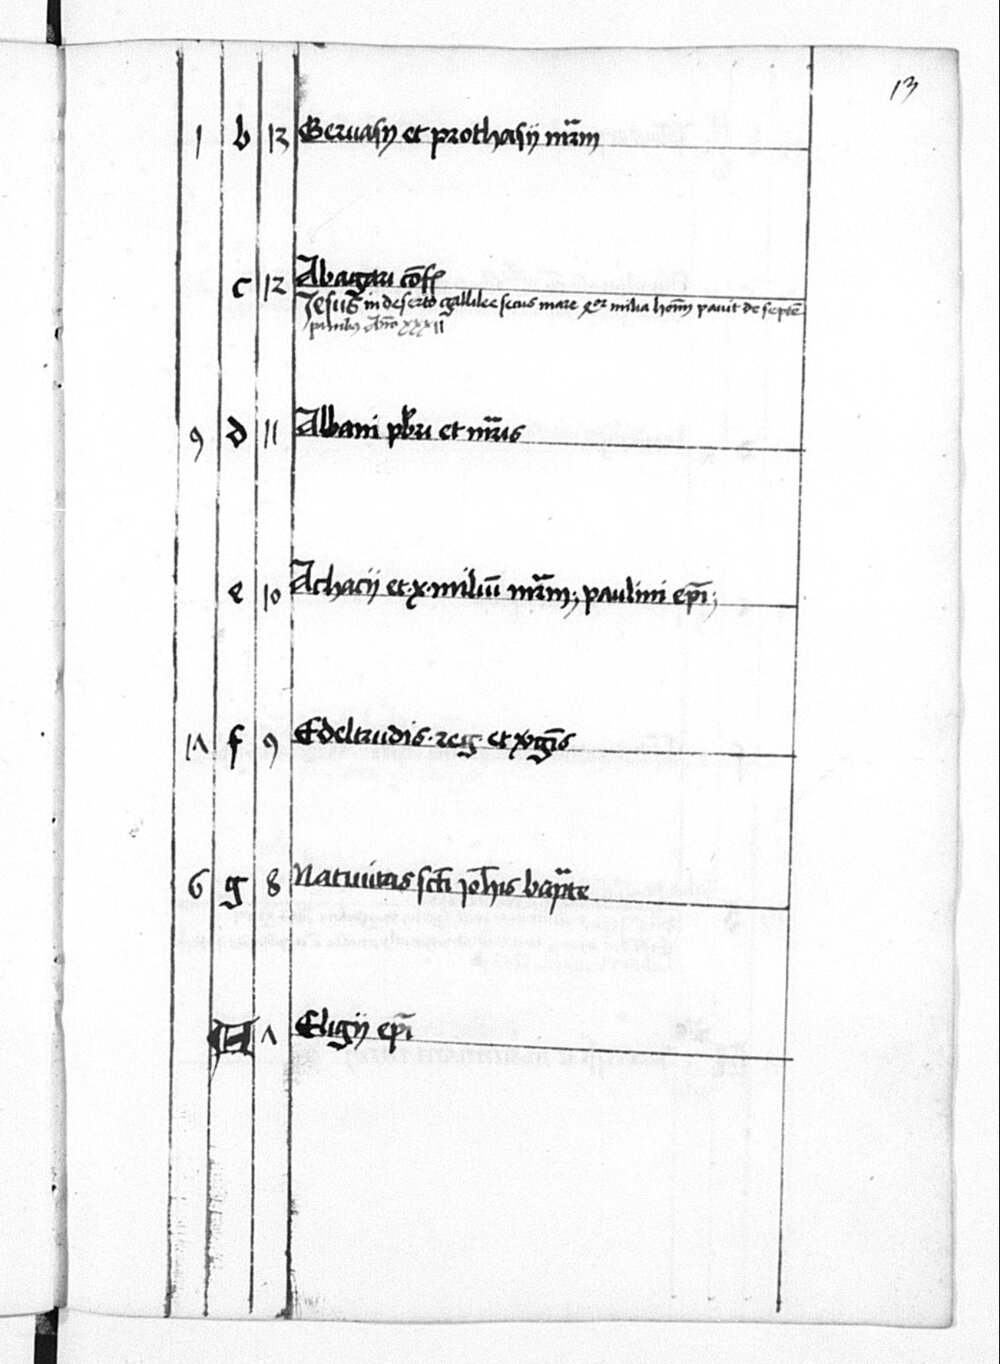 13
1 b 13 Geruasij et prothasij mr̄m
c 12 Abagari cōf
Jesus in deserto gallilee secus mare qor milia hoīm pauit de septē
panibus Anno xxxii
9 d 11 Albani pbri et mr̄is
e 10 Achacij et ·x· miliū mr̄m; paulini ep̄i;
17 f 9 Edeltrudis· reg· et v̓gīs
6 g 8 Natiuitas sc̄ti joh̄is bap̄te
A 7 Eligij ep̄i